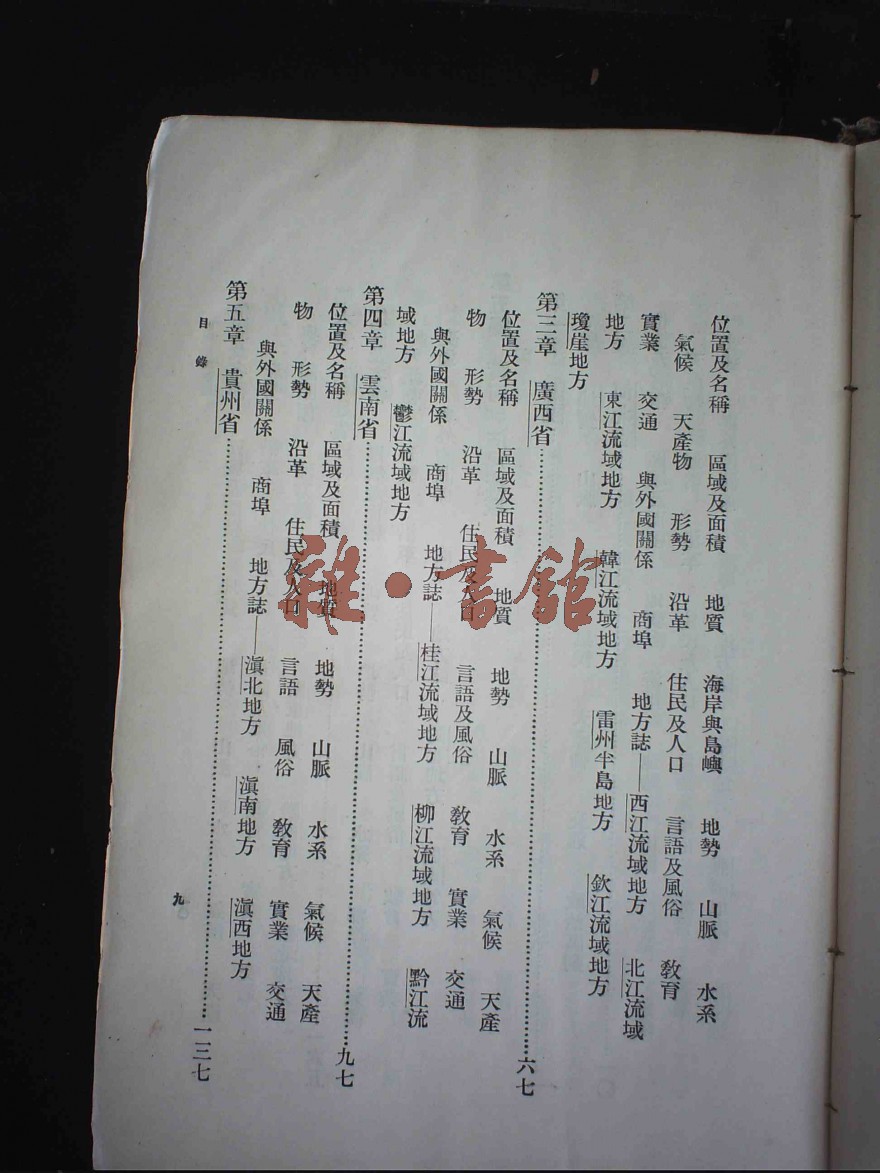 位置及名稱 區域及面積 地質 海岸與島嶼 地勢 山脈 水系
氣候 天產物 形勢 沿革 住民及人口 言語及風俗 教育
實業 交通 與外國關係 商埠 地方誌——西江流域地方 北江流域
地方 東江流域地方 韓江流域地方 雷州半島地方 欽江流域地方
瓊崖地方
第三章 廣西省……六七
位置及名稱 區域及面積 地質 地勢 山脈 水系 氣候 天產
物 形勢 沿革 住民及人口 言語及風俗 教育 實業 交通
與外國關係 商埠 地方誌——桂江流域地方 柳江流域地方 黔江流
域地方 鬱江流域地方
第四章 雲南省……九七
位置及名稱 區域及面積 地質 地勢 山脈 水系 氣候 天產
物 形勢 沿革 住民及人口 言語 風俗 教育 實業 交通
與外國關係 商埠 地方誌——滇北地方 滇南地方 滇西地方
第五章 貴州省……一三七
目錄
九
雜·書館